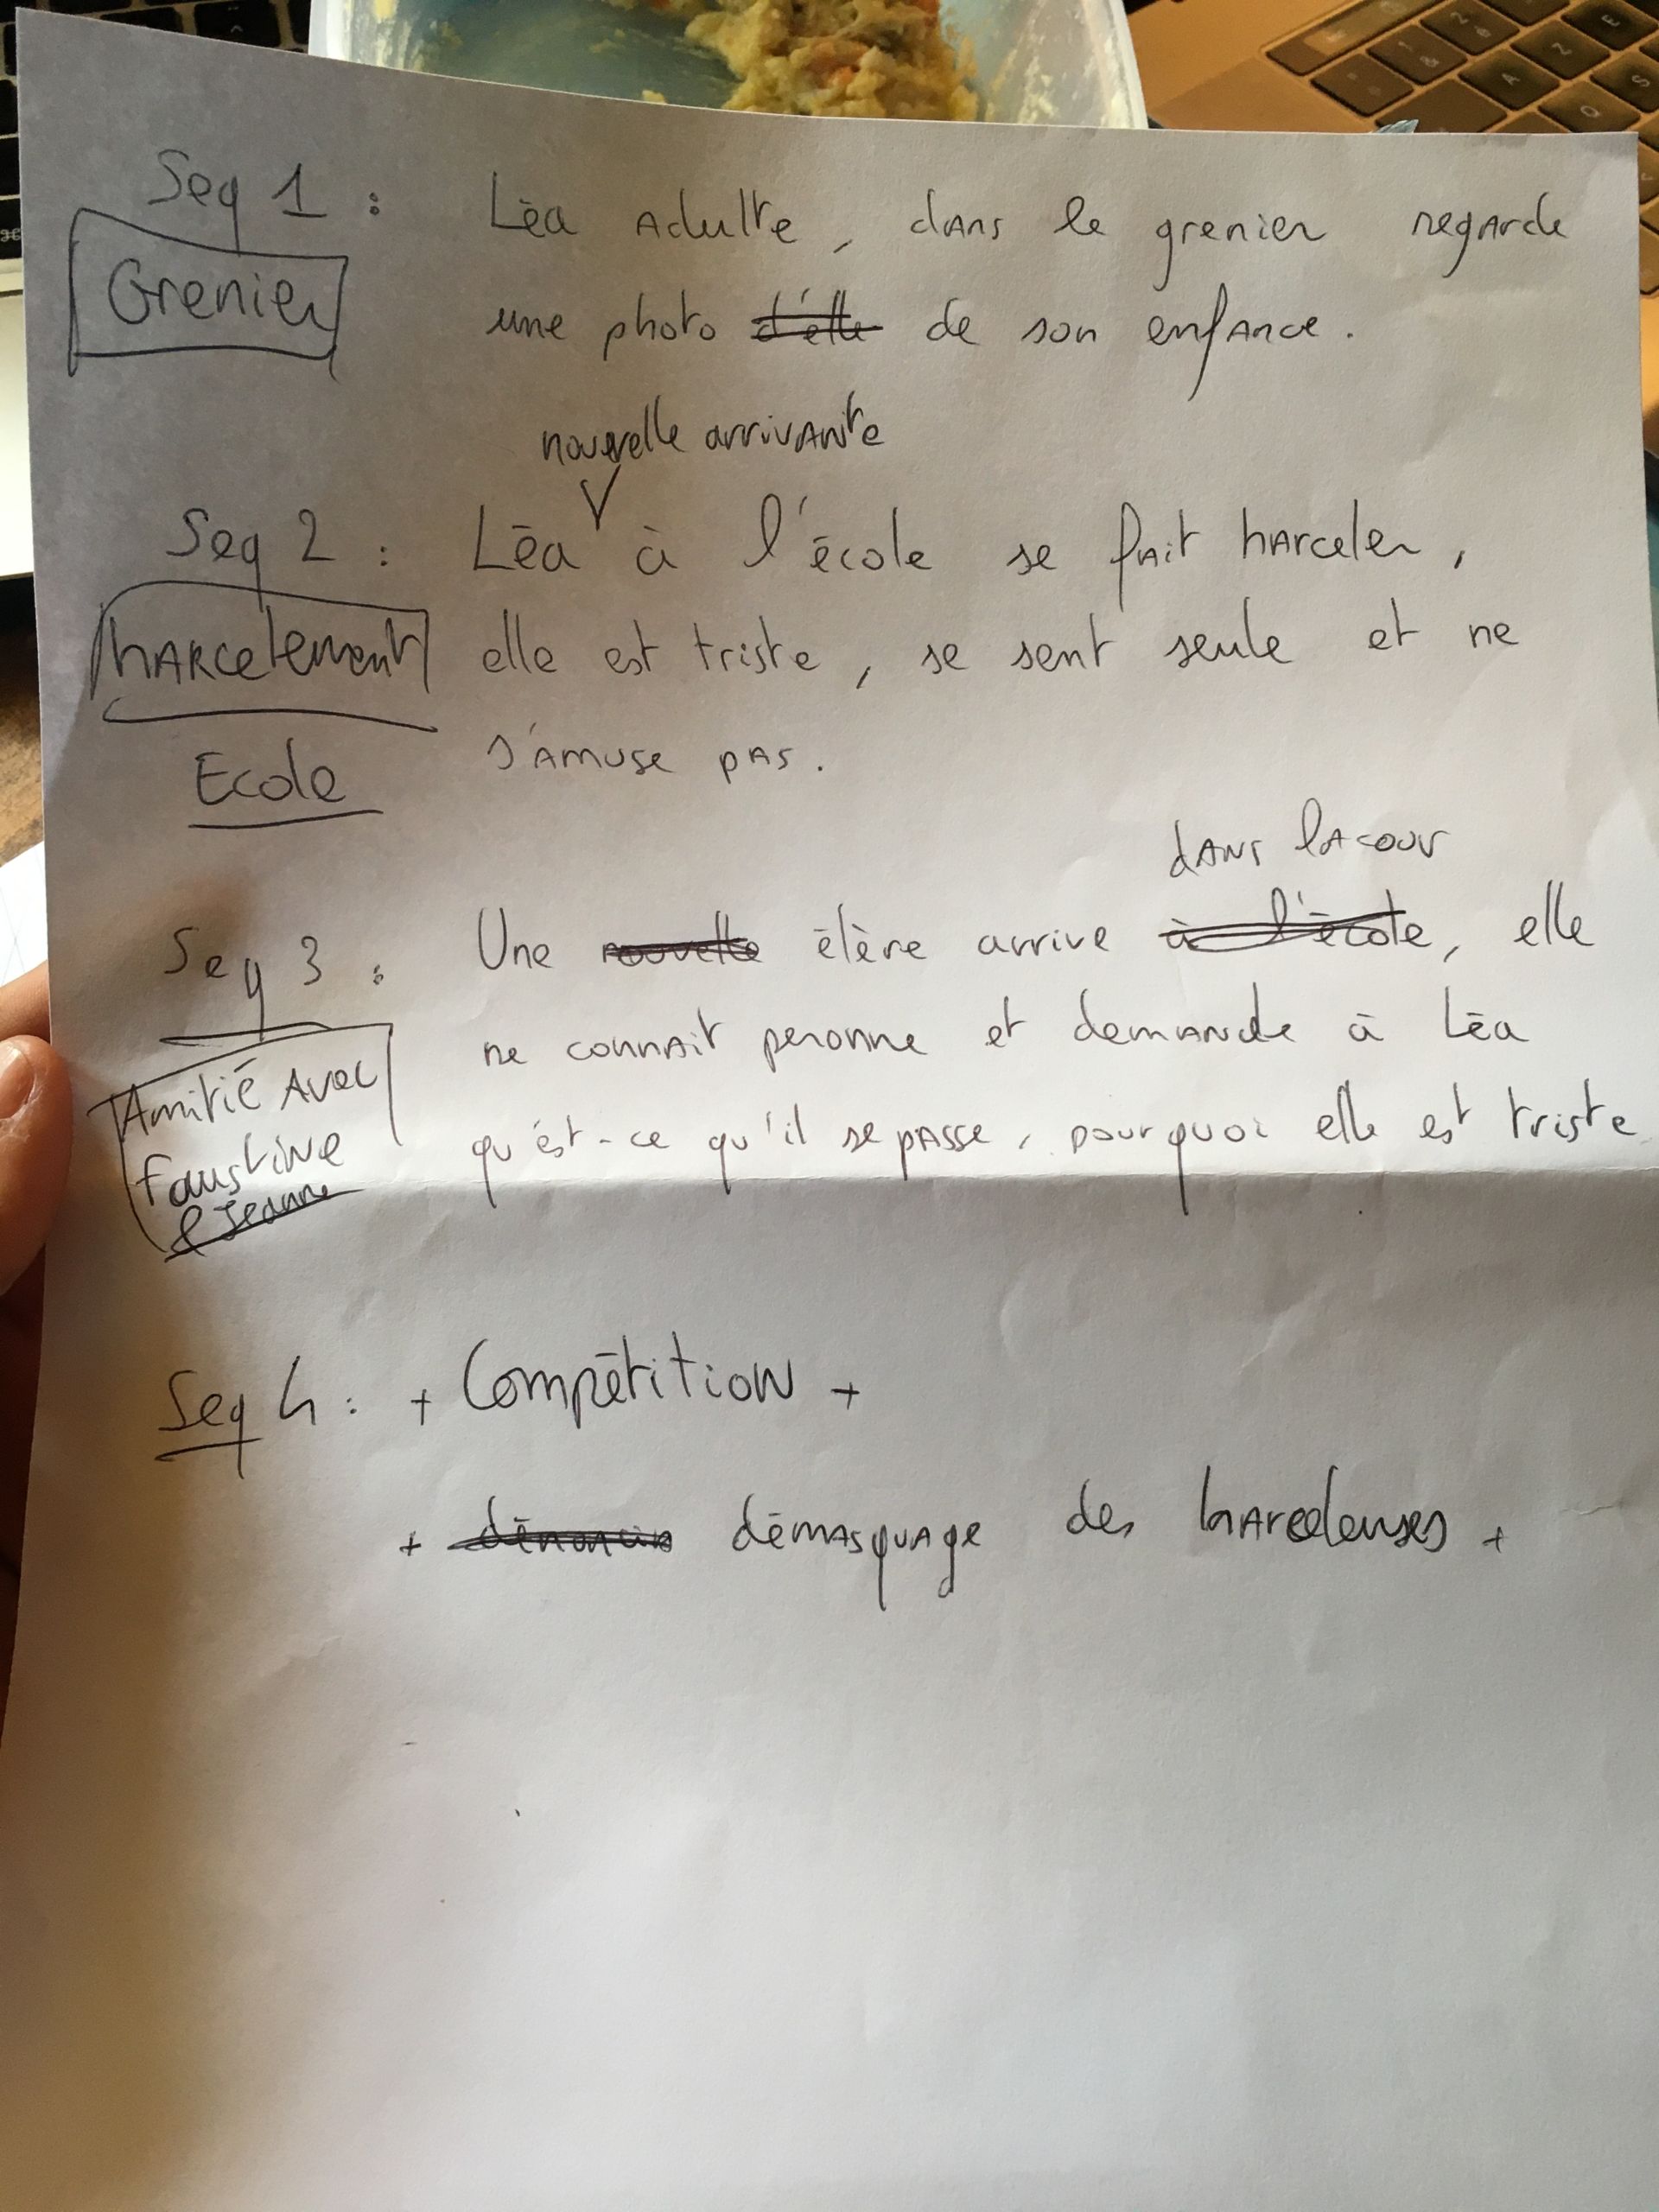 Seq 1 : Léa adulte, dans le grenier regarde
Grenier
une photo d'elle de son enfance.
nouvelle arrivante
Seq 2 : Léa à l'école se fait harceler,
harcelement
elle est triste, se sent seule et ne
s'amuse pas.
Ecole
dans la cour
Seq 3 : Une nouvelle élève arrive à l'école, elle
ne connait peronne et demande à Léa
Amitié avec
qu'est-ce qu'il se passe, pourquoi elle est triste
Faustine
& Jeanne
Seq 4 : + Compétition +
+ démasquage des harceleuses +